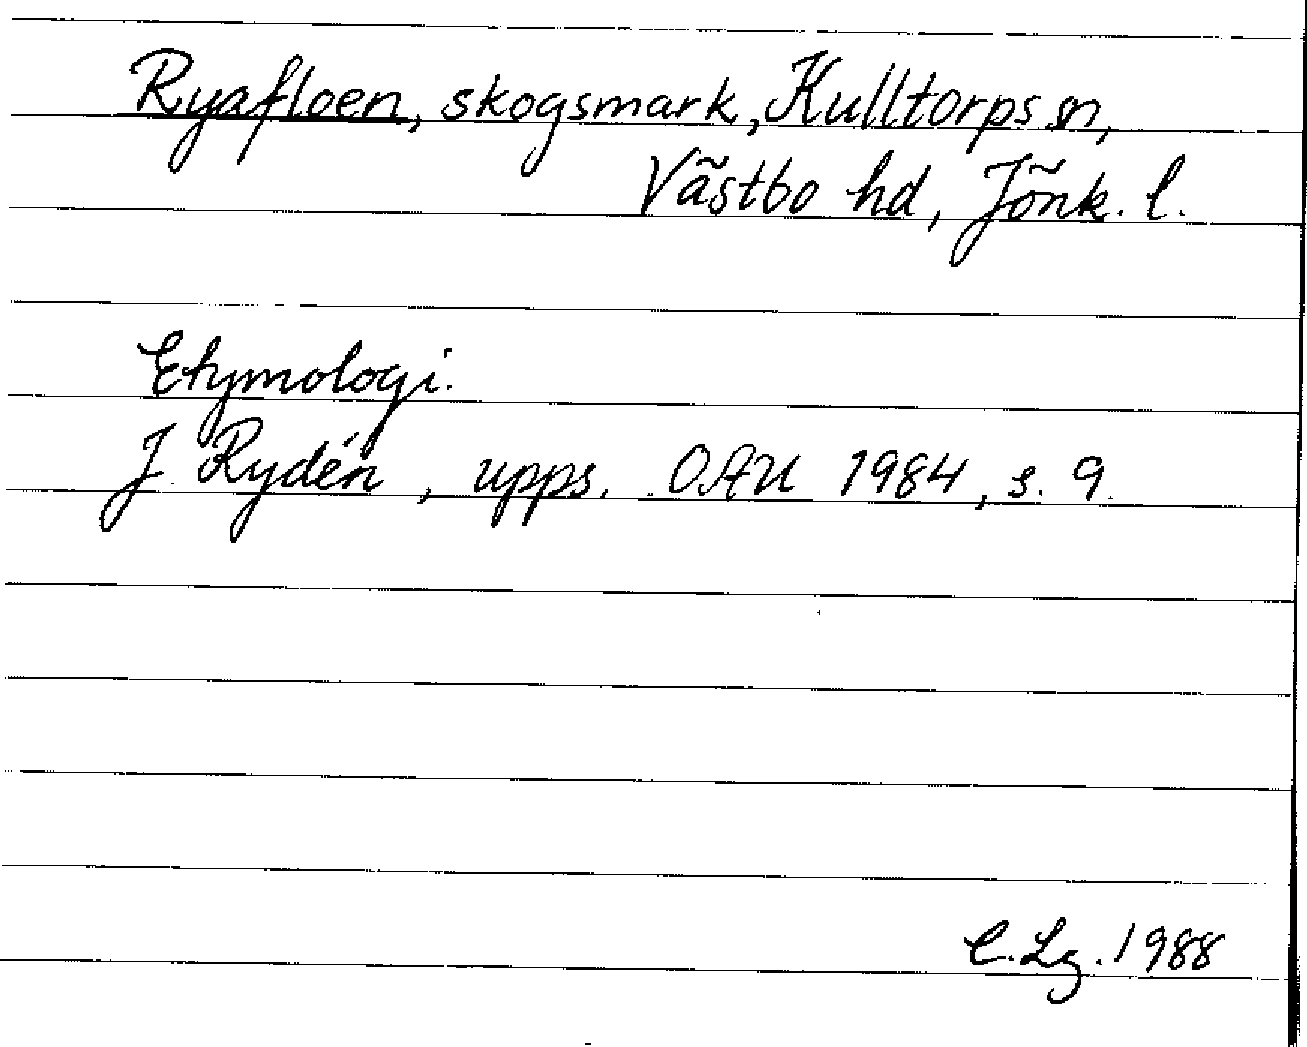 Ryafloen, skogsmark, Kulltorps sn,
Västbo hd, Jönk. l.
Etymologi.
J Rydén, upps. OAU 1984, s. 9.
C.Lg. 1988